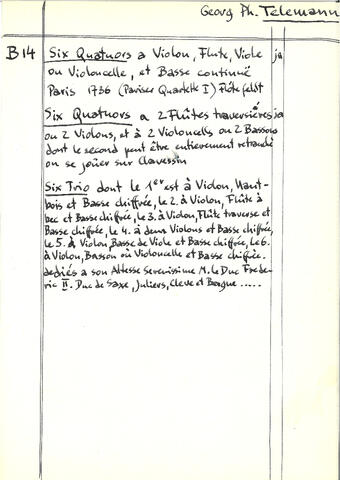 Georg Ph. Telemann
B14 Six Quatuors a Violon, Flute, Viole ja
ou Violoncelle, et Basse continuë
Paris 1736 (Pariser Quartette I) Flötefeldt
Six Quatuors a 2 Flûtes traversières ja
ou 2 Violons, et à 2 Violoncells ou 2 Bassons
dont le second peut être entierement retranché
ou se joüer sur Clavessin
Six Trio dont le 1er est à Violon, Haut-
bois et Basse chiffrée, le 2. à Violon, Flûte à
bec et Basse chiffrée, le 3. à Violon, Flûte traverse et
Basse chiffrée, le 4. à deux Violons et Basse chiffrée,
le 5. à Violon, Basse de Viole et Basse chiffrée, le 6.
à Violon, Basson où Violoncelle et Basse chiffrée.
dediés a son Altesse Serenissime M. le Duc Frede-
ric II. Duc de Saxe, Juliers, Cleve et Bergue .....